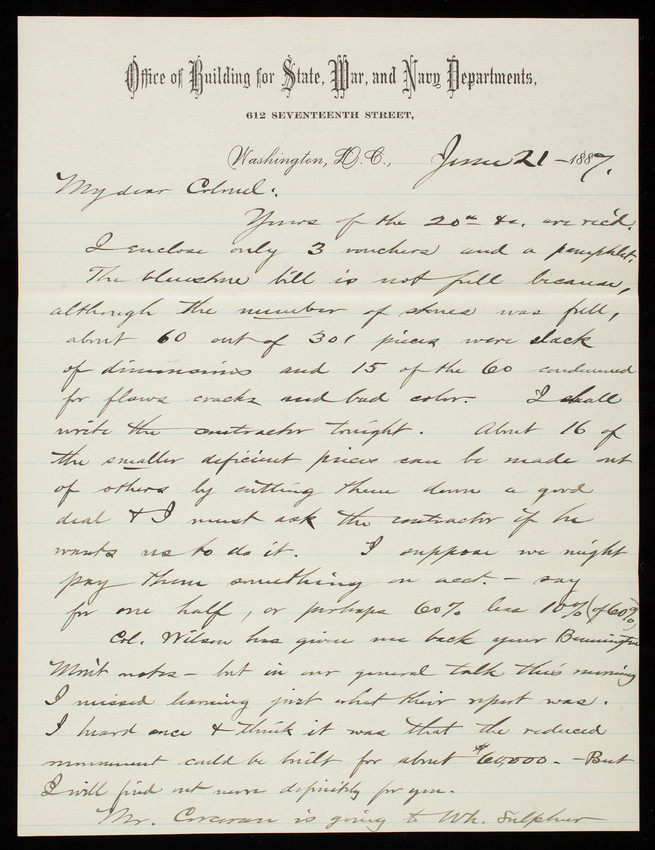 Office of Building for State, War, and Navy Departments,
612 SEVENTEENTH STREET,
Washington, D.C., June 21 - 1887.
My dear Colonel:
Yours of the 20th &c. are rec'd.
I enclose only 3 vouchers and a pamphlet.
The bluestone bill is not full because,
although the number of stones was full,
about 60 out of 301 pieces were slack
of dimensions and 15 of the 60 condemned
for flaws cracks and bad color. I shall
write the contractor tonight. About 16 of
the smaller deficient pieces can be made out
of others by cutting them down a good
deal & I must ask the contractor if he
wants us to do it. I suppose we might
pay them something on acct. - say
for one half, or perhaps 60% less 10% (of 60%)
Col. Wilson has given me back your Bennington
Mon't notes - but in our general talk this morning
I missed learning just what their report was.
I heard once & think it was that the reduced
monument could be built for about $60,000. - But
I will find out more definitely for you.
Mr. Corcoran is going to Wh. Sulphur